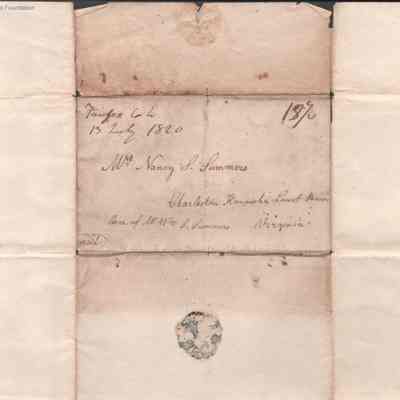 Foundation
Fairfax C.H.
13 July 1820
18¾
Mrs Nancy S. Summers
Charleston Kanawha Court House
Care of
S. Summers Virginia